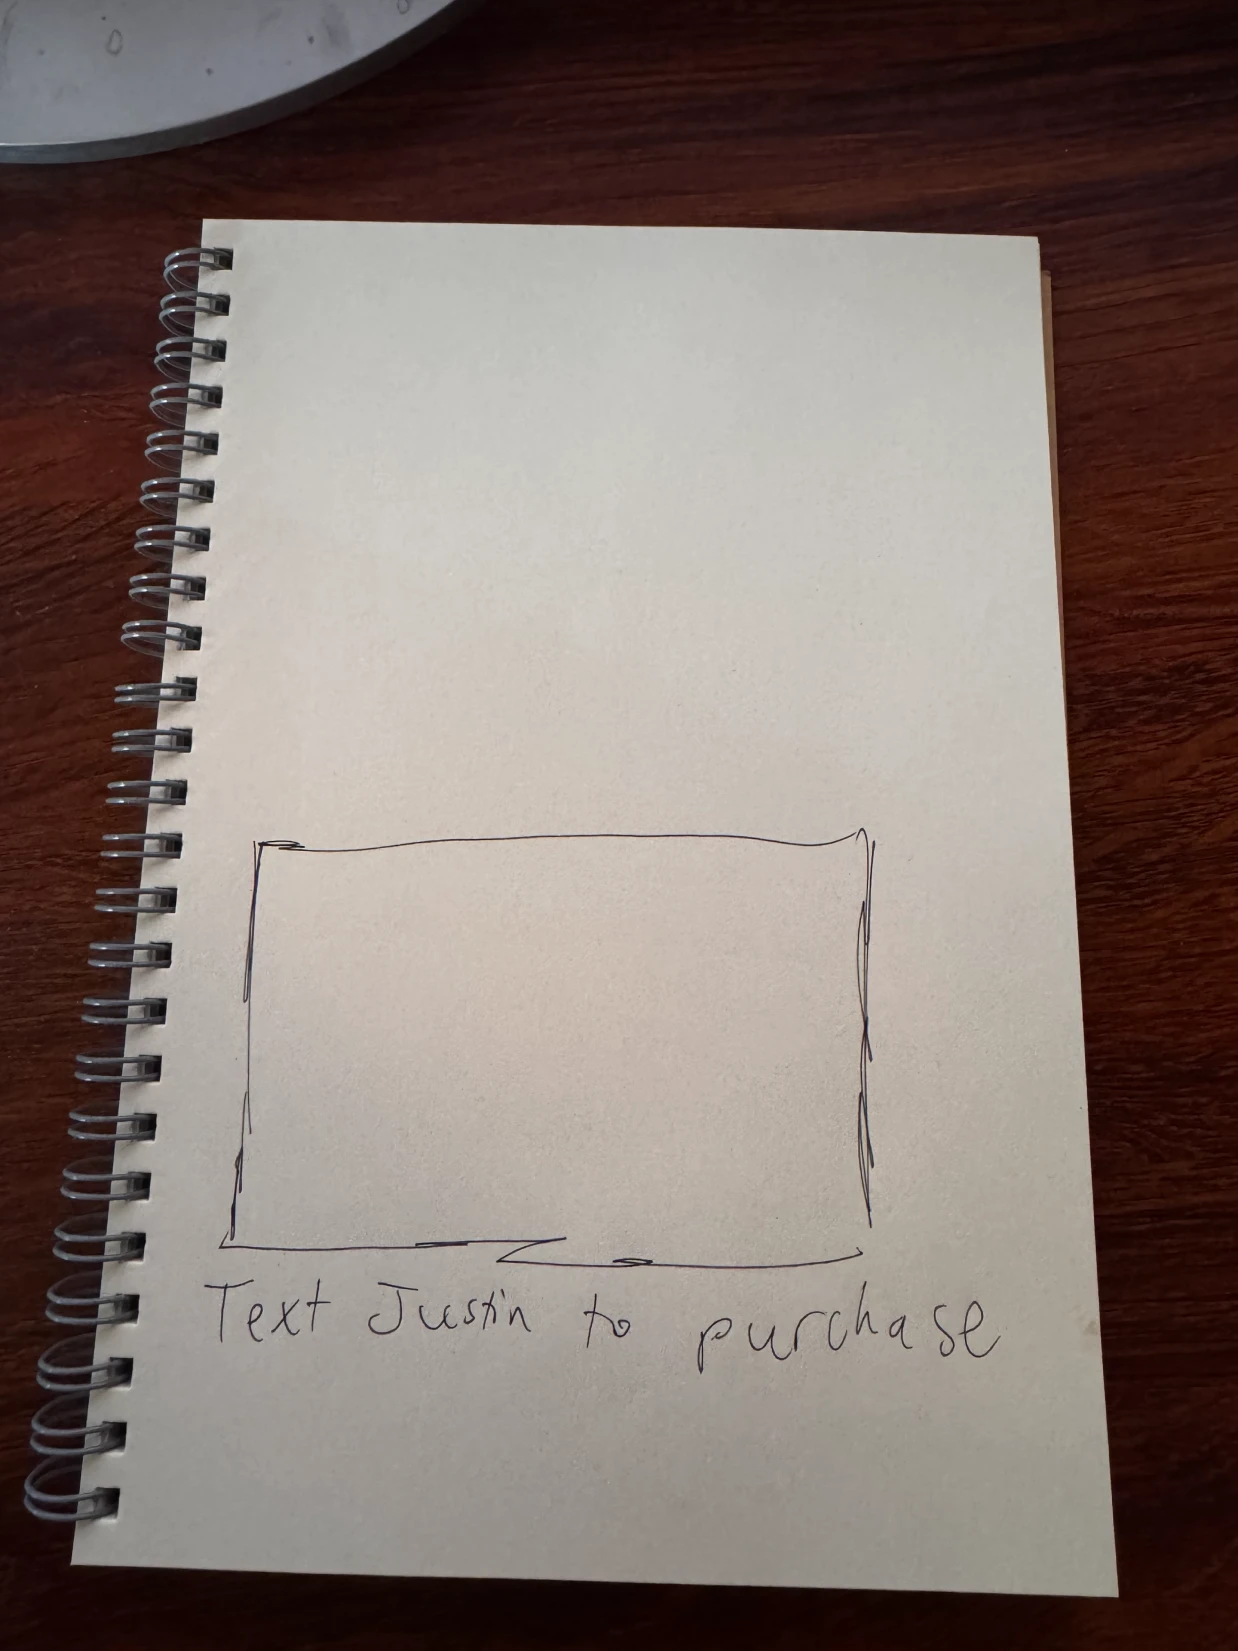 Text Justin to purchase